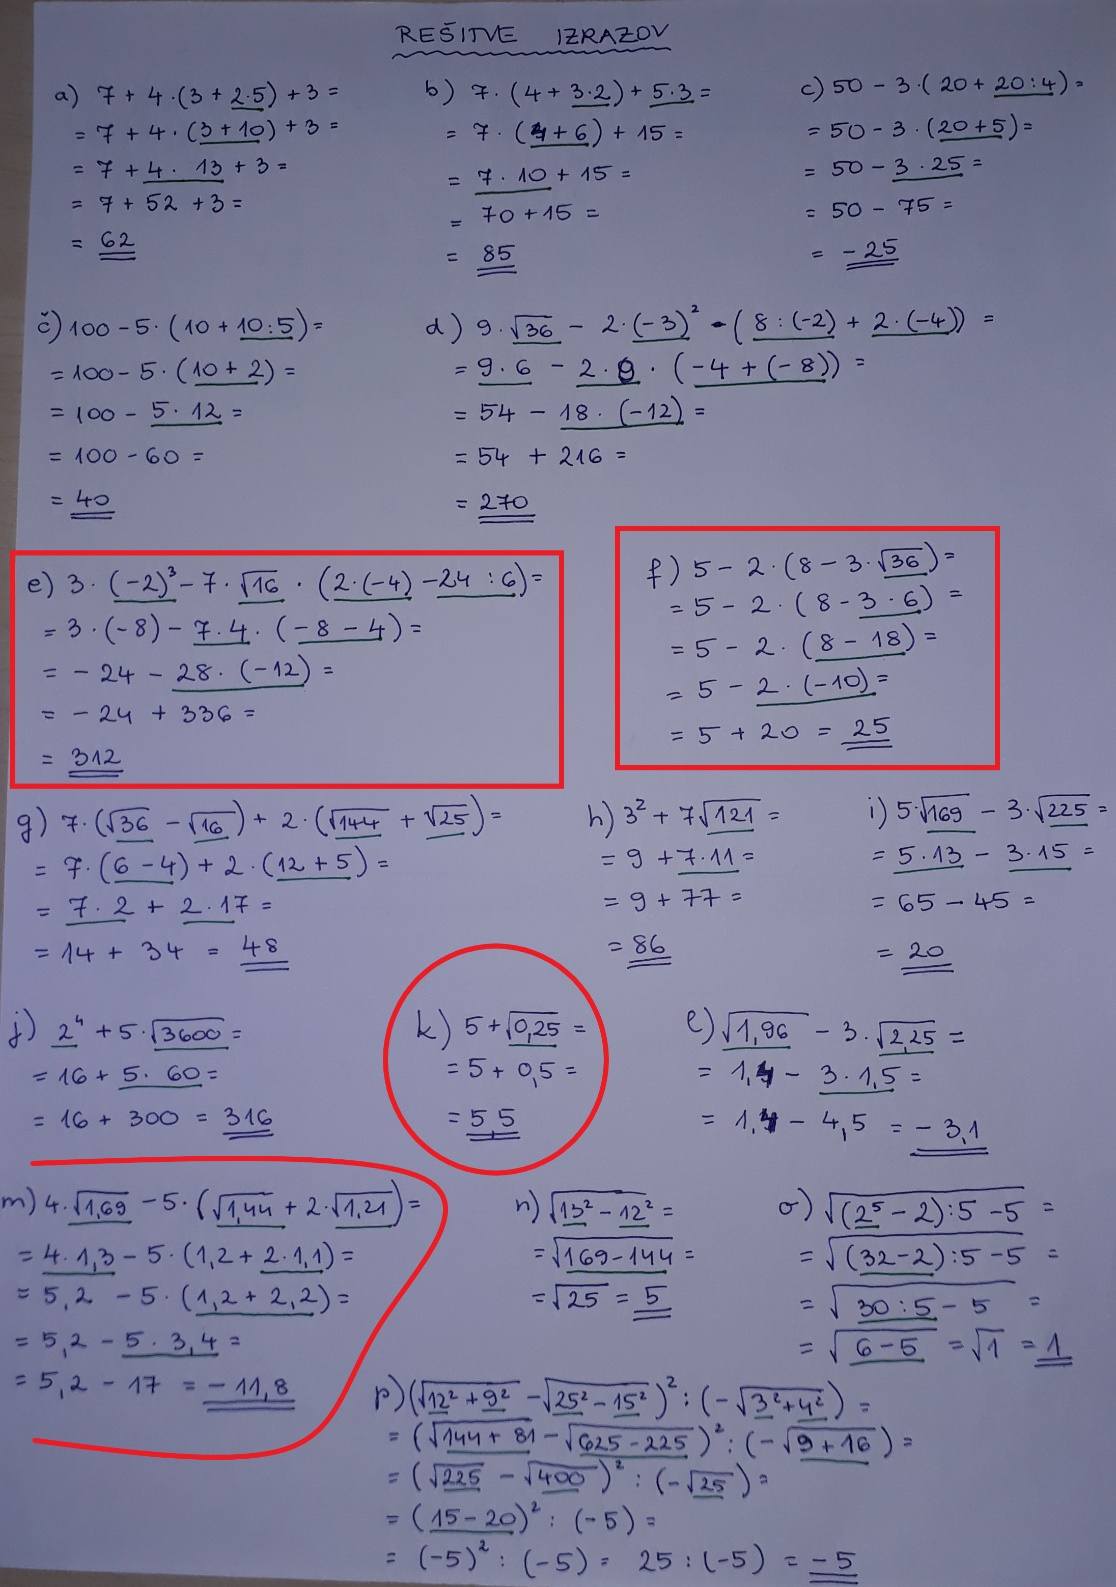 REŠITVE IZRAZOV
a) 7 + 4·(3 + 2·5) + 3 =
= 7 + 4·(3 + 10) + 3 =
= 7 + 4·13 + 3 =
= 7 + 52 + 3 =
= 62
b) 7·(4 + 3·2) + 5·3 =
= 7·(4 + 6) + 15 =
= 7·10 + 15 =
= 70 + 15 =
= 85
c) 50 - 3·(20 + 20:4) =
= 50 - 3·(20 + 5) =
= 50 - 3·25 =
= 50 - 75 =
= -25
č) 100 - 5·(10 + 10:5) =
= 100 - 5·(10 + 2) =
= 100 - 5·12 =
= 100 - 60 =
= 40
d) 9·√36 - 2·(-3)² - (8:(-2) + 2·(-4)) =
= 9·6 - 2·9·(-4 + (-8)) =
= 54 - 18·(-12) =
= 54 + 216 =
= 270
e) 3·(-2)³ - 7·√16·(2·(-4) - 24:6) =
= 3·(-8) - 7·4·(-8 - 4) =
= -24 - 28·(-12) =
= -24 + 336 =
= 312
f) 5 - 2·(8 - 3·√36) =
= 5 - 2·(8 - 3·6) =
= 5 - 2·(8 - 18) =
= 5 - 2·(-10) =
= 5 + 20 = 25
g) 7·(√36 - √16) + 2·(√144 + √25) =
= 7·(6 - 4) + 2·(12 + 5) =
= 7·2 + 2·17 =
= 14 + 34 = 48
h) 3² + 7√121 =
= 9 + 7·11 =
= 9 + 77 =
= 86
i) 5·√169 - 3·√225 =
= 5·13 - 3·15 =
= 65 - 45 =
= 20
j) 2⁴ + 5·√3600 =
= 16 + 5·60 =
= 16 + 300 = 316
k) 5 + √0,25 =
= 5 + 0,5 =
= 5,5
l) √1,96 - 3·√2,25 =
= 1,4 - 3·1,5 =
= 1,4 - 4,5 = -3,1
m) 4·√1,69 - 5·(√1,44 + 2·√1,21) =
= 4·1,3 - 5·(1,2 + 2·1,1) =
= 5,2 - 5·(1,2 + 2,2) =
= 5,2 - 5·3,4 =
= 5,2 - 17 = -11,8
n) √13² - 12² =
= √169 - 144 =
= √25 = 5
o) √(2⁵ - 2):5 - 5 =
= √(32 - 2):5 - 5 =
= √30:5 - 5 =
= √6 - 5 = √1 = 1
p) (√12² + 9² - √25² - 15²)² : (-√3² + 4²) =
= (√144 + 81 - √625 - 225)² : (-√9 + 16) =
= (√225 - √400)² : (-√25) =
= (15 - 20)² : (-5) =
= (-5)² : (-5) = 25 : (-5) = -5